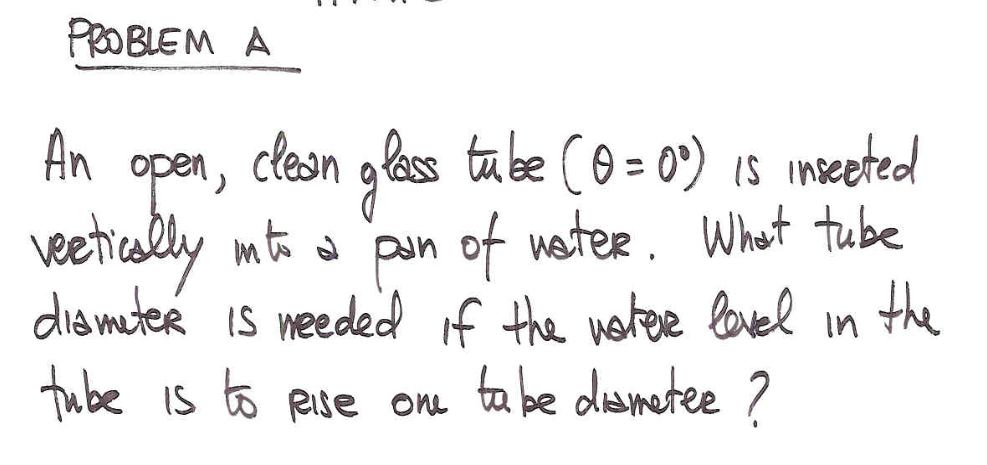 PROBLEM A
An open, clean glass tube (θ = 0°) is inserted
vertically into a pan of water. What tube
diameter is needed if the water level in the
tube is to rise one tube diameter?